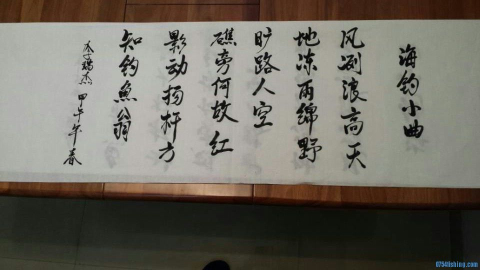 海钓小曲
风冽浪高天
地冻雨绵野
旷路人空
礁旁何故红
影动扬杆方
知钓魚翁
甲午年春